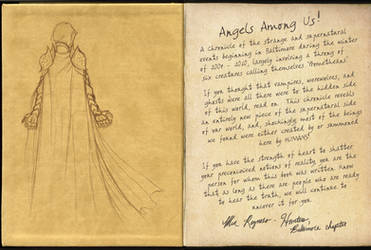 Angels Among Us!
A chronicle of the strange and supernatural
events beginning in Baltimore during the winter
of 2009 - 2010, largely involving a throng of
six creatures calling themselves "Prometheans"
If you thought that vampires, werewolves, and
ghosts were all there were to the hidden side
of this world, read on. This chronicle reveals
an entirely new piece of the supernatural side
of our world, and, shockingly, most of the beings
we found were either created by or summoned
here by HUMANS!
If you have the strength of heart to shatter
your preconceived notions of reality, you are the
person for whom this book was written. Know
that as long as there are people who are ready
to hear the truth, we will continue to
uncover it for you.
Hunter,
Baltimore chapter